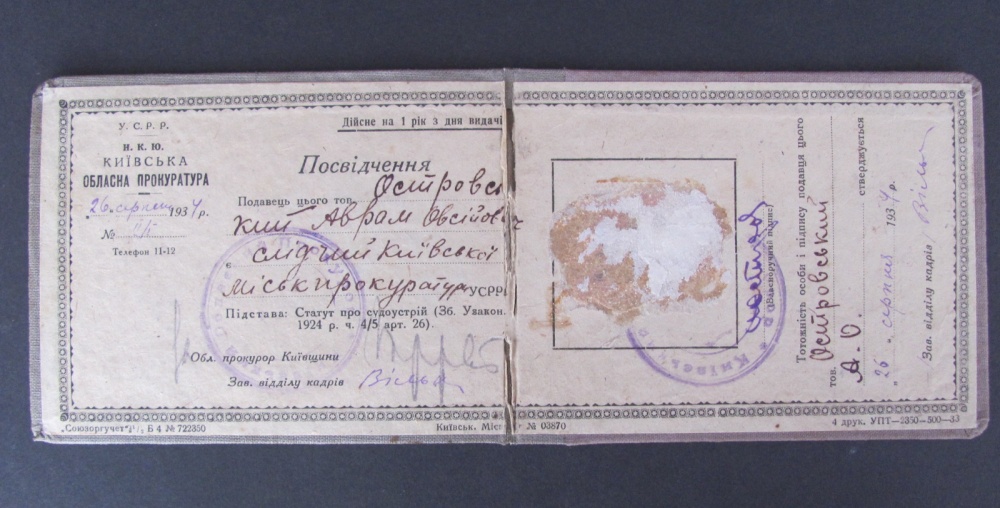 У. С. Р. Р.
Н. К. Ю.
КИЇВСЬКА
ОБЛАСНА ПРОКУРАТУРА
„26„ серпня 1934 р.
№
Телефон 11-12
Дійсне на 1 рік з дня видачі
Посвідчення
Подавець цього тов. Островсь
кий Аврам Овсійович
є слідчий Київської
міськпрокуратури УСРР
Підстава: Статут про судоустрій (Зб. Узакон.
1924 р. ч. 4/5 арт. 26).
Обл. прокурор Київщини
Зав. відділу кадрів
„Союзоргучет" Б 4 № 722350
Київськ. Міс № 03870
4 друк. УПТ—2350—500—33
(Власноручний підпис)
Тотожність особи і підпису подавця цього
тов. Островський
А. О. стверджується
„26„ серпня 1934 р.
Зав. відділу кадрів